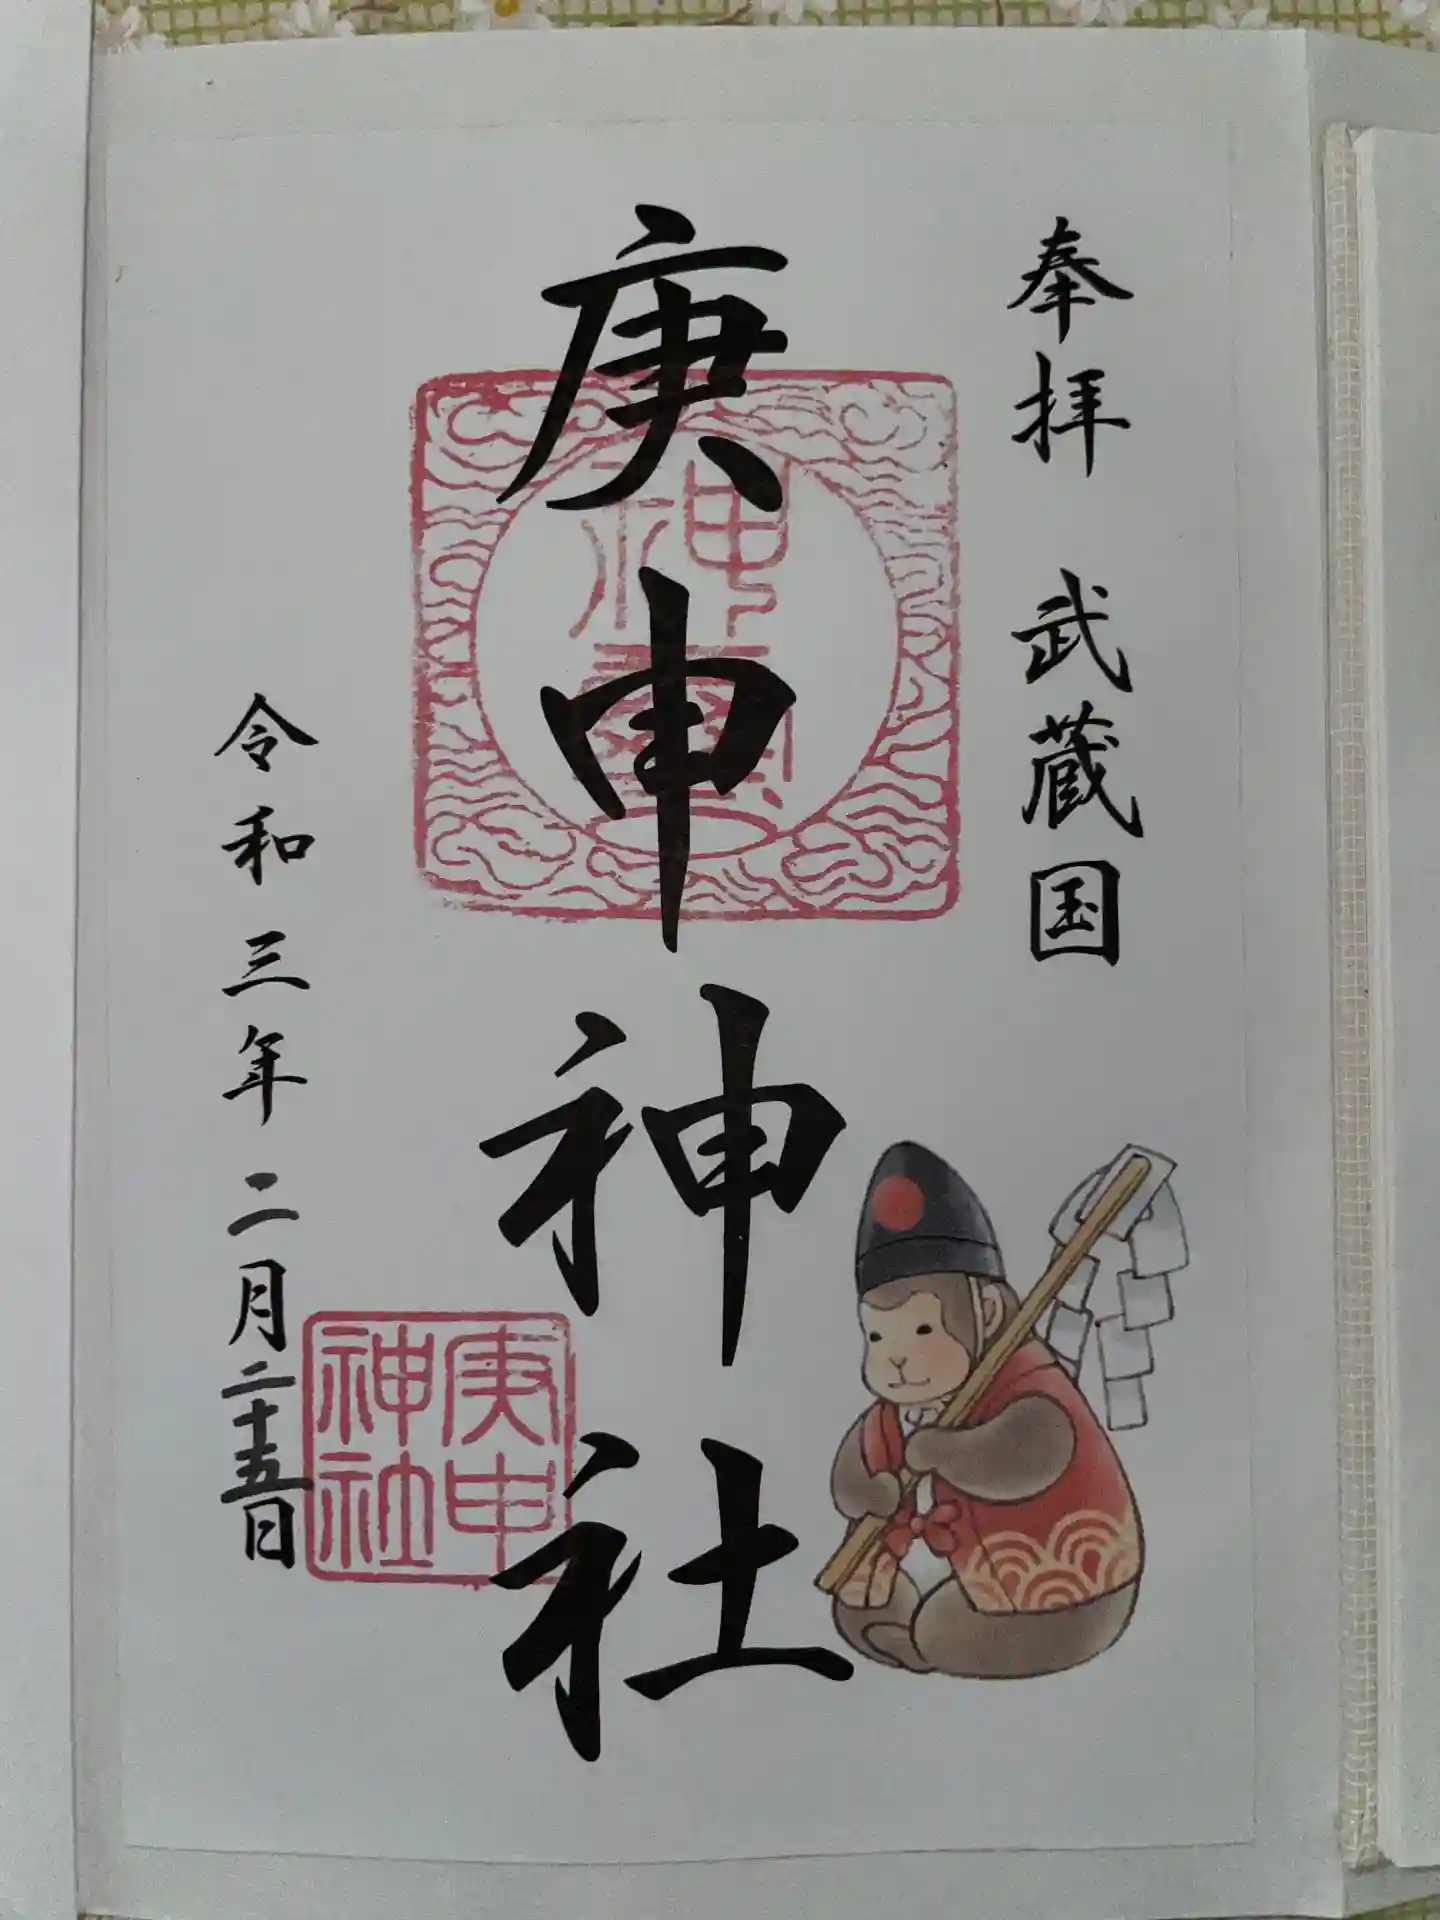 奉拝 武蔵国
庚申神社
神璽
庚申
神社
令和三年二月二十五日